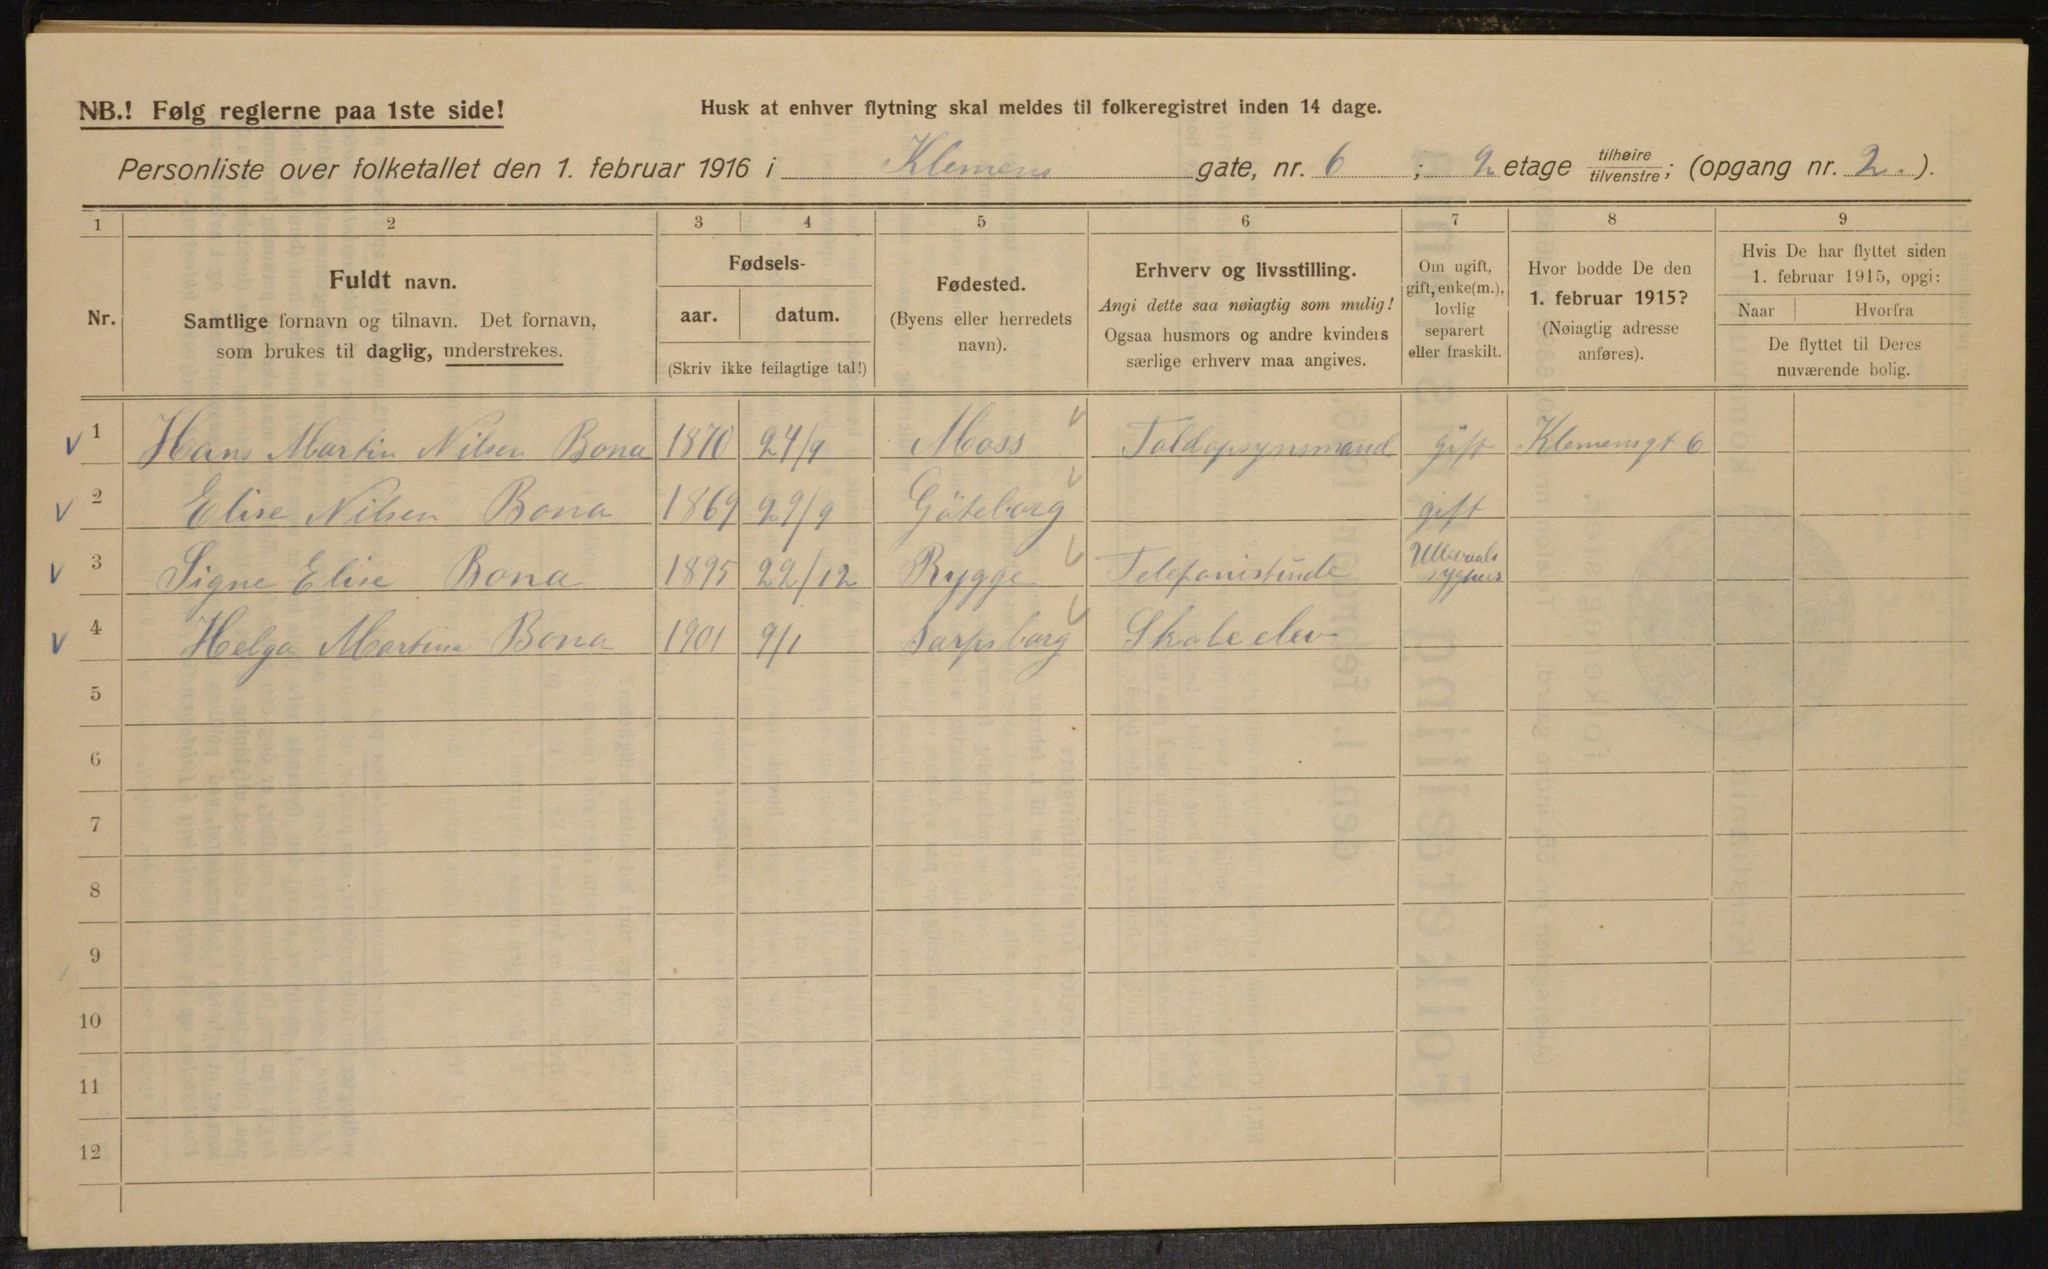 NB.! Følg reglerne paa 1ste side!
Husk at enhver flytning skal meldes til folkeregistret inden 14 dage.
Personliste over folketallet den 1. februar 1916 i Klemens gate, nr. 6 ; 2 etage tilhøire tilvenstre; (opgang nr. 2. ).
1 2 3 4 5 6 7 8 9
Nr.
Fuldt navn.
Samtlige fornavn og tilnavn. Det fornavn,
som brukes til daglig, understrekes.
Fødsels-
aar. datum.
(Skriv ikke feilagtige tal!)
Fødested.
(Byens eller herredets
navn).
Erhverv og livsstilling.
Angi dette saa nøiagtig som mulig!
Ogsaa husmors og andre kvinders
særlige erhverv maa angives.
Om ugift,
gift, enke(m.),
lovlig
separert
eller fraskilt.
Hvor bodde De den
1. februar 1915?
(Nøiagtig adresse
anføres).
Hvis De har flyttet siden
1. februar 1915, opgi:
Naar Hvorfra
De flyttet til Deres
nuværende bolig.
1 Hans Martin Nilsen Bona 1870 24/9 Moss Toldopsynsmand gift Klemensgt 6
2 Elise Nilsen Bona 1869 29/9 Göteborg gift
3 Signe Elise Bona 1895 22/12 Rygge Telefonistinde Ullevaals
4 Helga Martina Bona 1901 9/1 Sarpsborg Skole elev
5
6
7
8
9
10
11
12